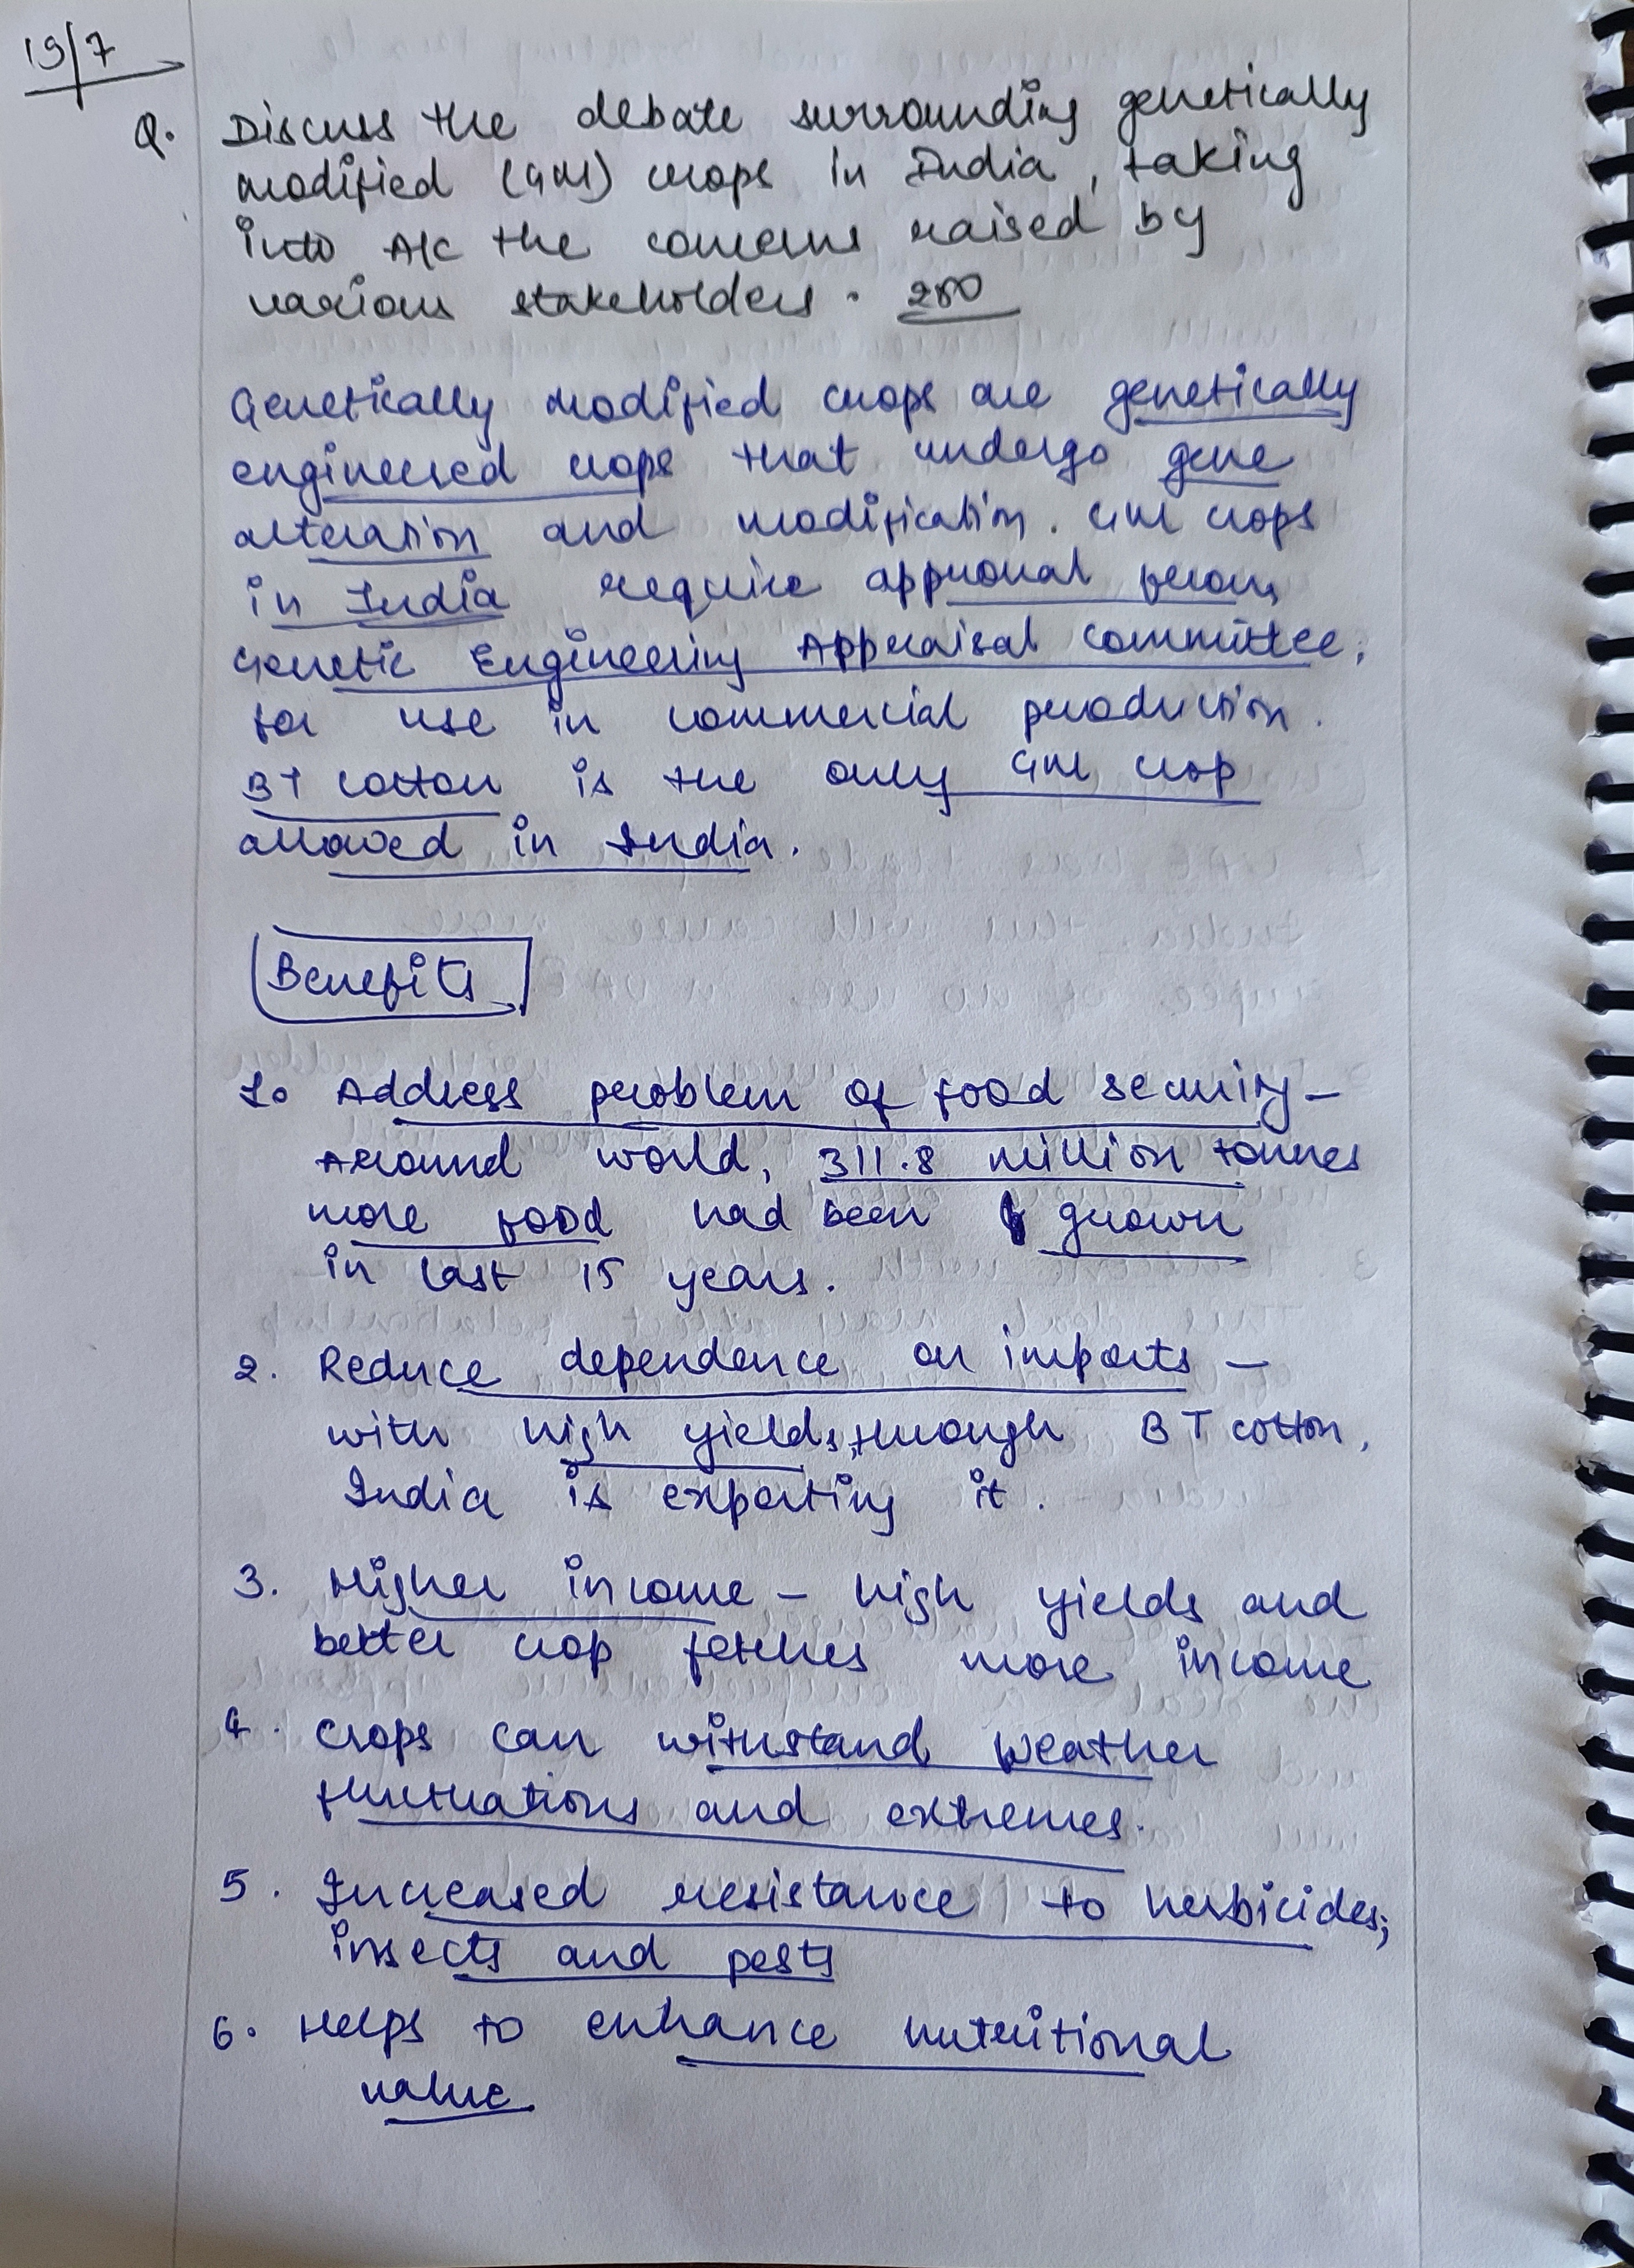 19/7
Q. Discuss the debate surrounding genetically
modified (GM) crops in India, taking
into A/c the concerns raised by
various stakeholders. 250
Genetically modified crops are genetically
engineered crops that undergo gene
alteration and modification. GM crops
in India require approval from
Genetic Engineering Appraisal Committee,
for use in commercial production.
BT cotton is the only GM crop
allowed in India.
Benefits
1. Address problem of food security -
Around world, 311.8 million tonnes
more food had been grown
in last 15 years.
2. Reduce dependence on imports -
with high yields, through BT cotton,
India is exporting it.
3. Higher income - high yields and
better crop fetches more income
4. Crops can withstand weather
fluctuations and extremes.
5. Increased resistance to herbicides,
insects and pests
6. Helps to enhance nutritional
value.